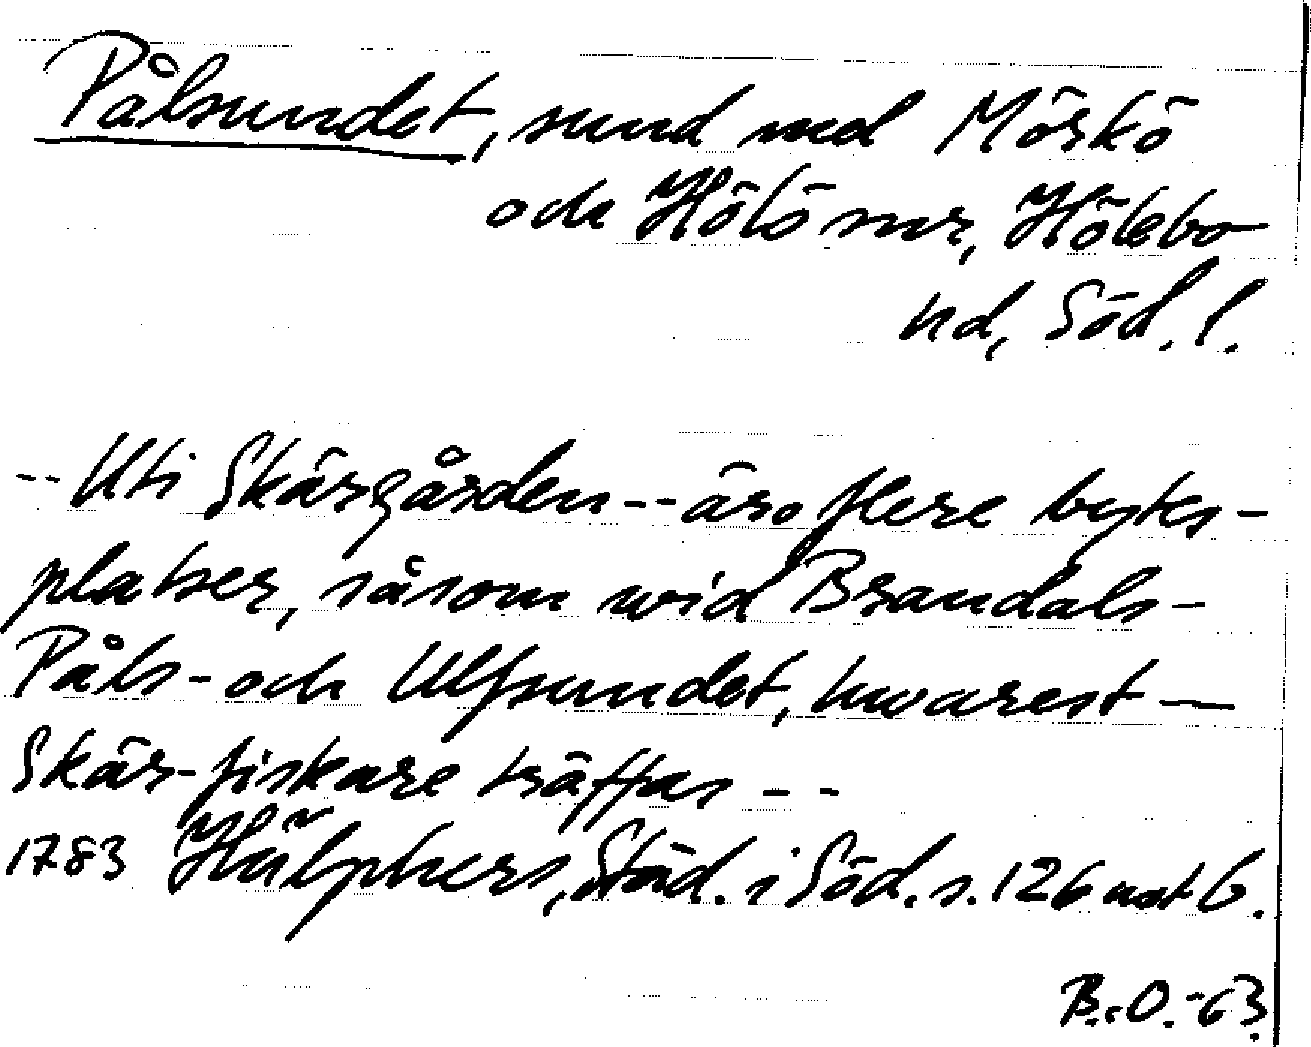 Pålsundet, sund med Mörkö
och Hölö snr, Hölebo
hd, Söd. l.
-- Uti Skärgården -- äro flere bytes-
platser, såsom wid Brandals-
Påls- och Ulfsundet, hwarest —
Skär-fiskare träffas --
1783 Hülphers, Städ. i Söd. s. 126 not b.
B.-O.-63.